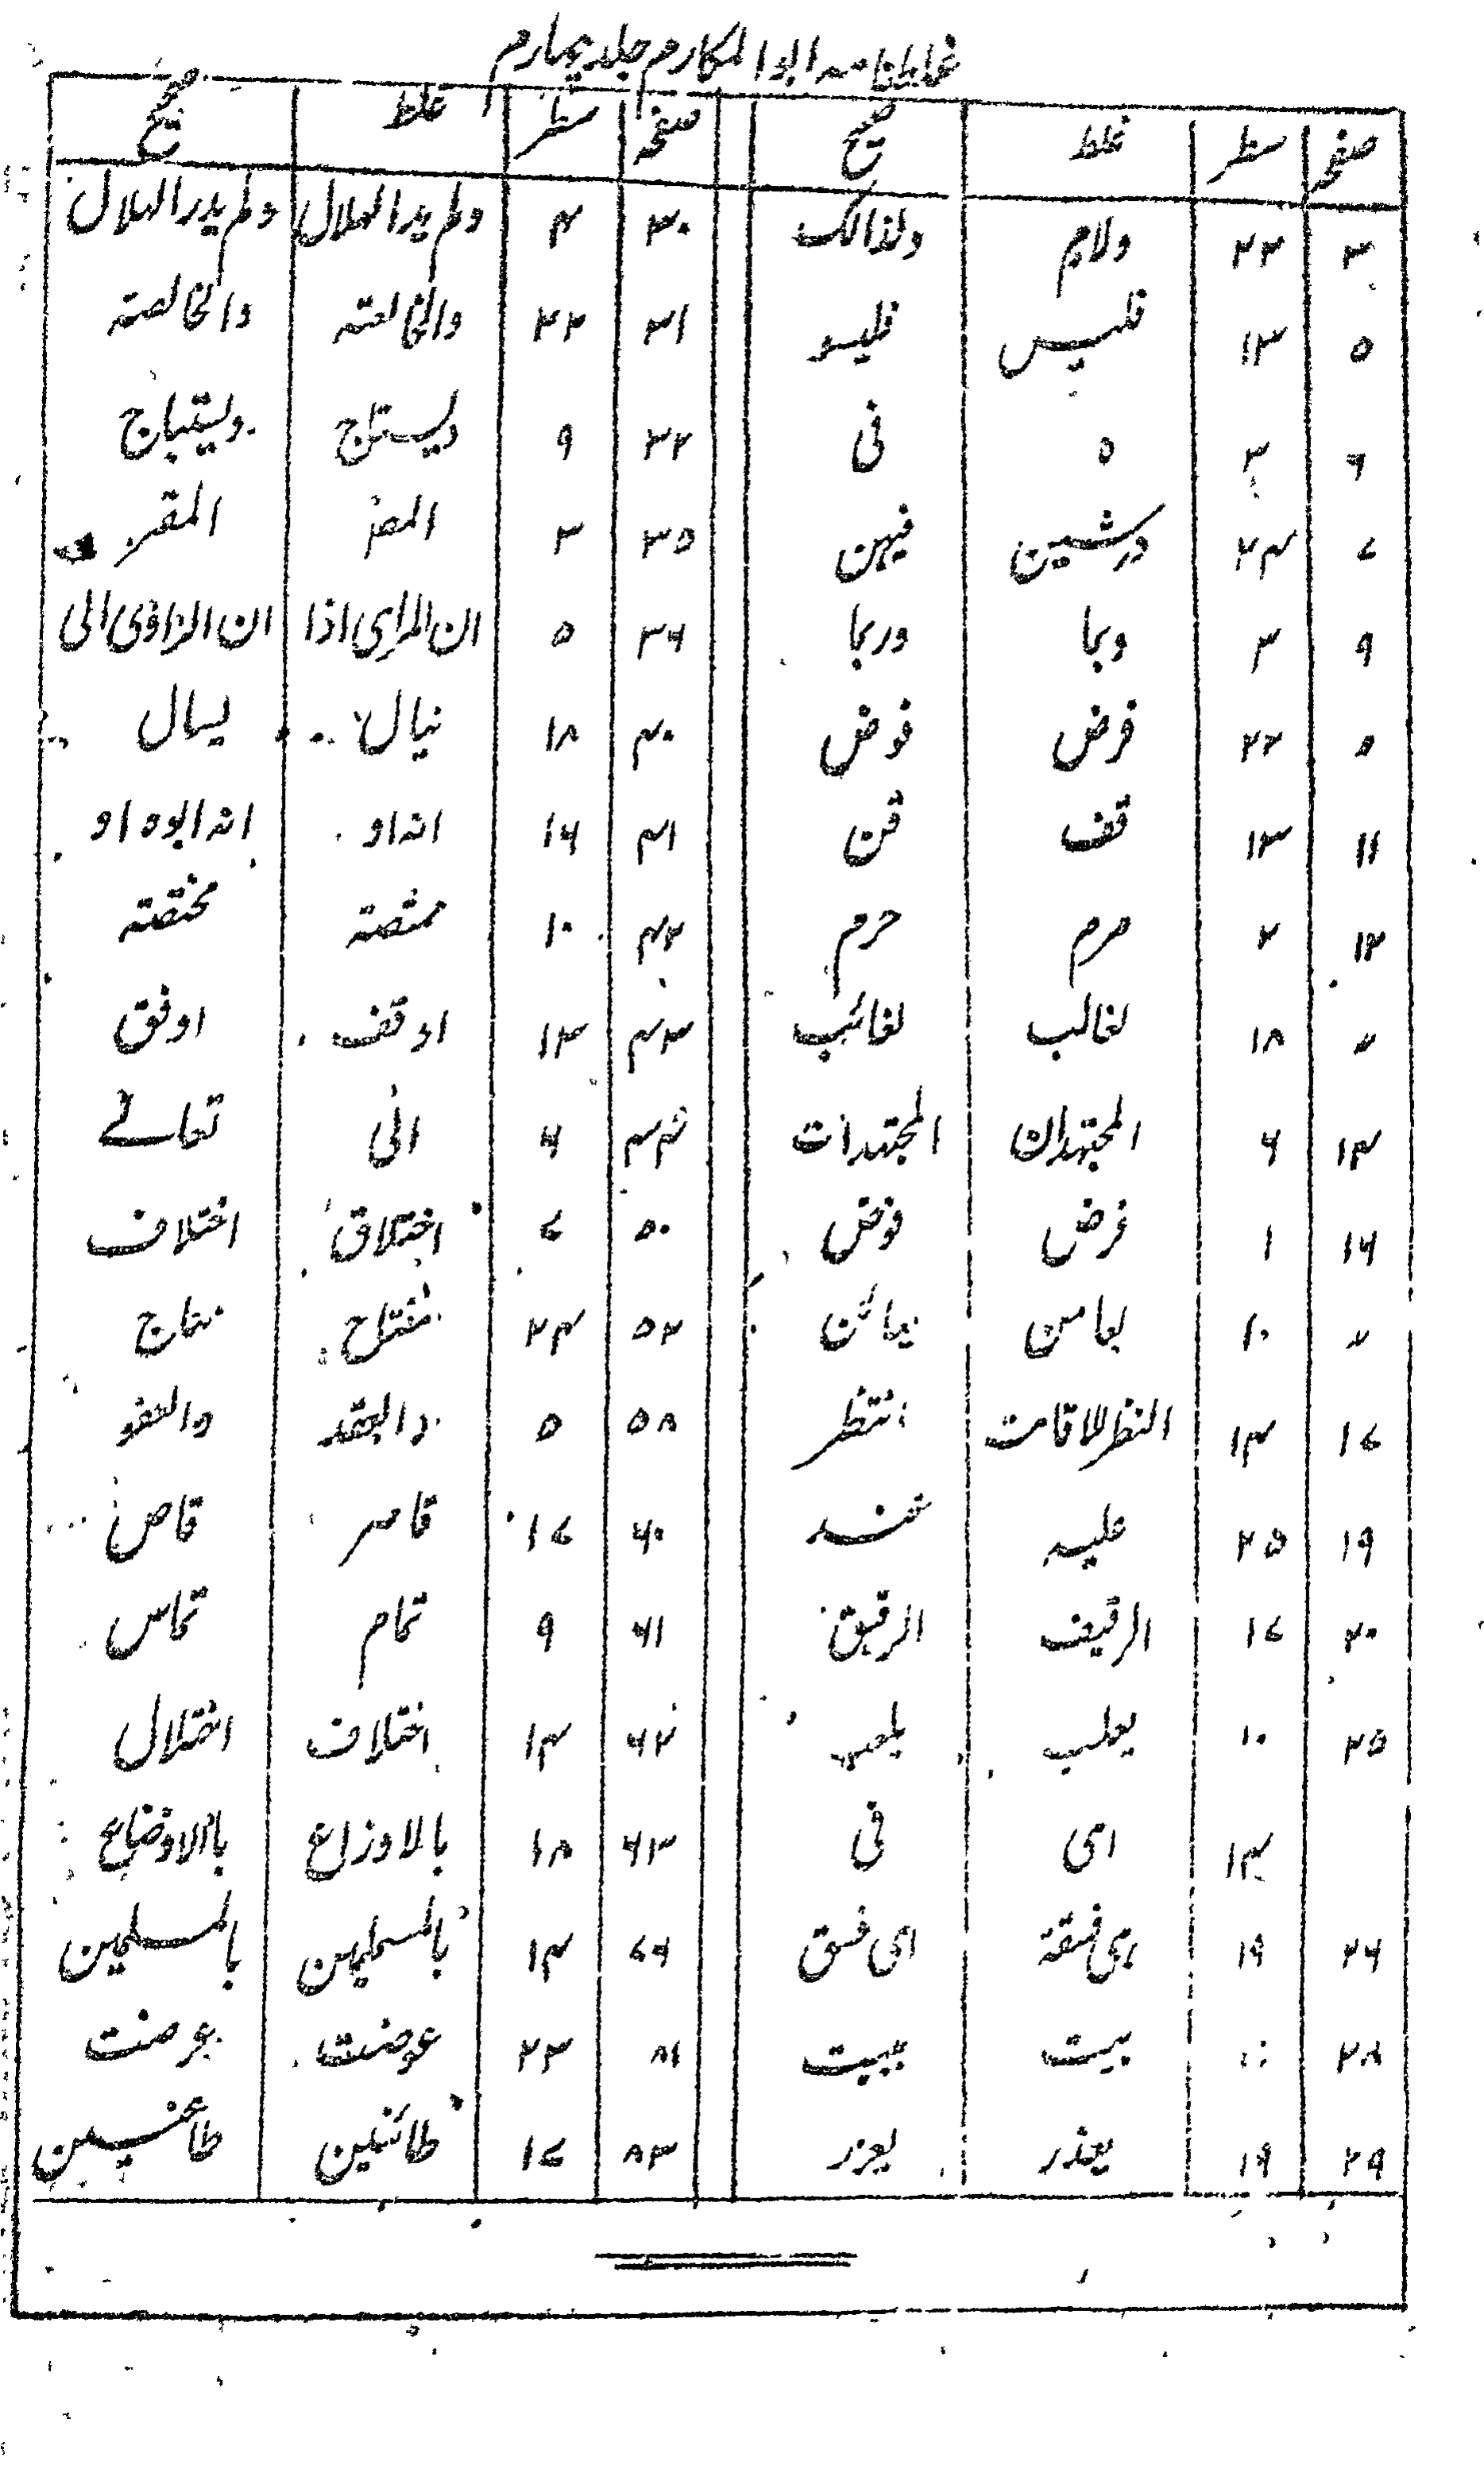 غلطنامہ ابو المکارم جلد چہارم
صفحہ سطر غلط صحیح صفحہ سطر غلط صحیح
۳ ۲۲ ولام ولذالک ۳۰ ۴ ولم یدرالہلال
۵ ۱۳ فلیس فلیسو ۳۱ ۲۲ والخالعتہ والخالصتہ
۶ ۳ ٥ فی ۳۲ ۹
۷ ۲۴ درشین فیہن ۳۵ ۳ المقر
۹ ۳ وبما وربما ۳۶ ۵ ان الراوی الی
۵ ۲۲ فرض فوض ۴۰ ۱۸ نیال لیال
۱۱ ۱۳ قف قن ۴۱ ۱۶ انہ او انہ ابوہ او
۱۲ ۲ صرم حرم ۴۲ ۱۰ ممثصتہ مختصتہ
〃 ۱۸ لغالب لغائب ۴۳ ۱۳ اوقف اوفق
۱۴ ۶ المجتہدان المجتہدات ۴۴ ۶ الی تعالے
۱۶ ۱ فرض فوض ۵۰ ۷ اختلاق اختلاف
〃 ۱۰ ۵۲ ۲۴
۱۷ ۱۴ النظر للاقامت انتظر ۵۸ ۵ والعقد والعفو
۱۹ ۲۵ علیہ عند ۶۰ ۱۷ قاصر قاص
۲۰ ۱۷ الرقیف الرقیق ۶۱ ۹ تمام تماس
۲۵ ۱۰ یعلب یلعب ۶۲ ۱۴ اختلاف اختلال
۱۴ ای فی ۶۳ ۱۸ بالاوزاع بالاوضاع
۲۶ ۱۹ ای فسق ۷۶ ۱۴ بالمسلمین بالمسلمین
۲۸ بیت ببیت ۸۱ ۲۳ عوضت عرضت
۲۹ ۱۹ یعذر یعزر ۸۳ ۱۷ طائنین طاعنین